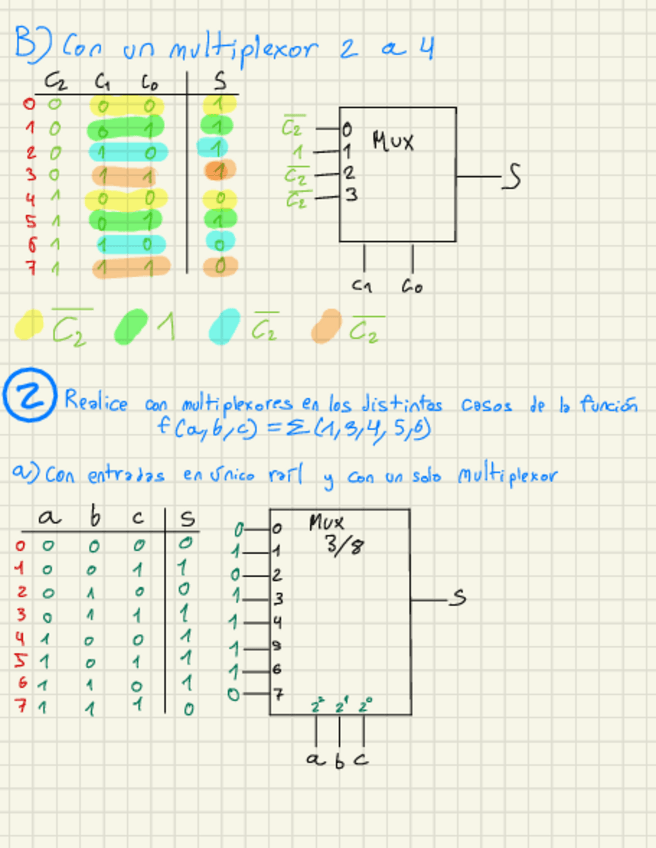 B) Con un multiplexor 2 a 4
C₂ C₁ C₀ S
0 0 0 0 1
1 0 0 1 1
2 0 1 0 1
3 0 1 1 1
4 1 0 0 0
5 1 0 1 1
6 1 1 0 0
7 1 1 1 0
Mux
C̅₂ 0
1 1
C̅₂ 2
C̅₂ 3
S
C₁ C₀
C̅₂ 1 C̅₂ C̅₂
2 Realice con multiplexores en los distintos casos de la función
f(a,b,c) = Σ(1,3,4,5,6)
a) Con entradas en único raíl y con un solo multiplexor
a b c S
0 0 0 0 0
1 0 0 1 1
2 0 1 0 0
3 0 1 1 1
4 1 0 0 1
5 1 0 1 1
6 1 1 0 1
7 1 1 1 0
Mux
3/8
0 0
1 1
0 2
1 3
1 4
1 5
1 6
0 7
S
2² 2¹ 2⁰
a b c